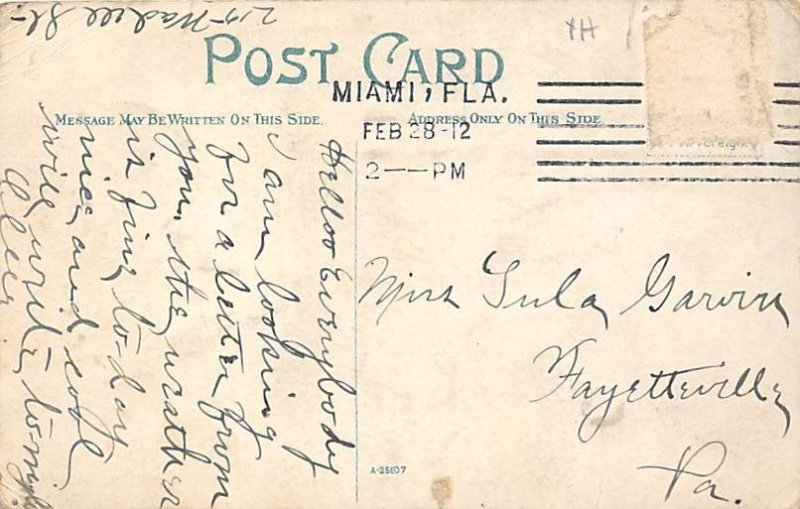 POST CARD
MIAMI, FLA.
FEB 28-12
2 — PM
MESSAGE MAY BE WRITTEN ON THIS SIDE.
ADDRESS ONLY ON THIS SIDE
Helloo Everybody
I am looking
for a letter from
you, the weather
is fine to-day
nice and cool
will write to-night
215 St-
Miss Lula Garvin
Fayetteville
Pa.
A-25107
XH